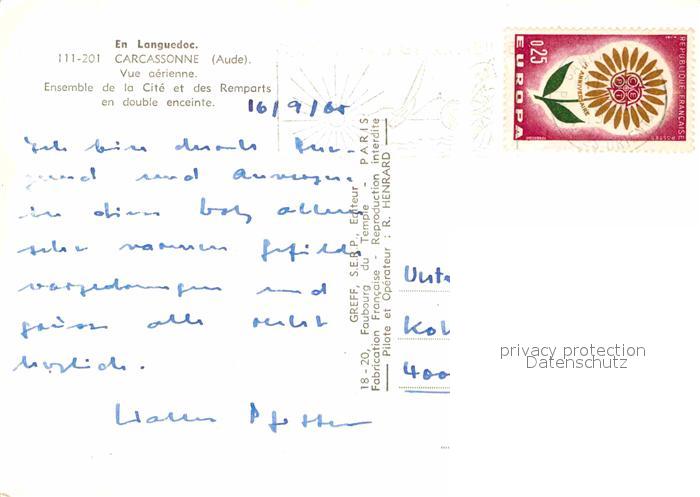 En Languedoc.
111-201 CARCASSONNE (Aude).
Vue aérienne.
Ensemble de la Cité et des Remparts
en double enceinte.
16/9/65
Ich bin durch Bur-
gund und Auvergne
in diese trotz allem
sehr warmen Gefilde
vorgedrungen und
grüsse alle recht
herzlich.
Walter
GREFF, S.E.R.P., Editeur
18-20, Faubourg du Temple - PARIS
Fabrication Française - Reproduction interdite
Pilote et Opérateur : R. HENRARD
400
REPUBLIQUE FRANÇAISE
POSTES
0,25
EUROPA
CEPT
Ve ANNIVERSAIRE
privacy protection
Datenschutz